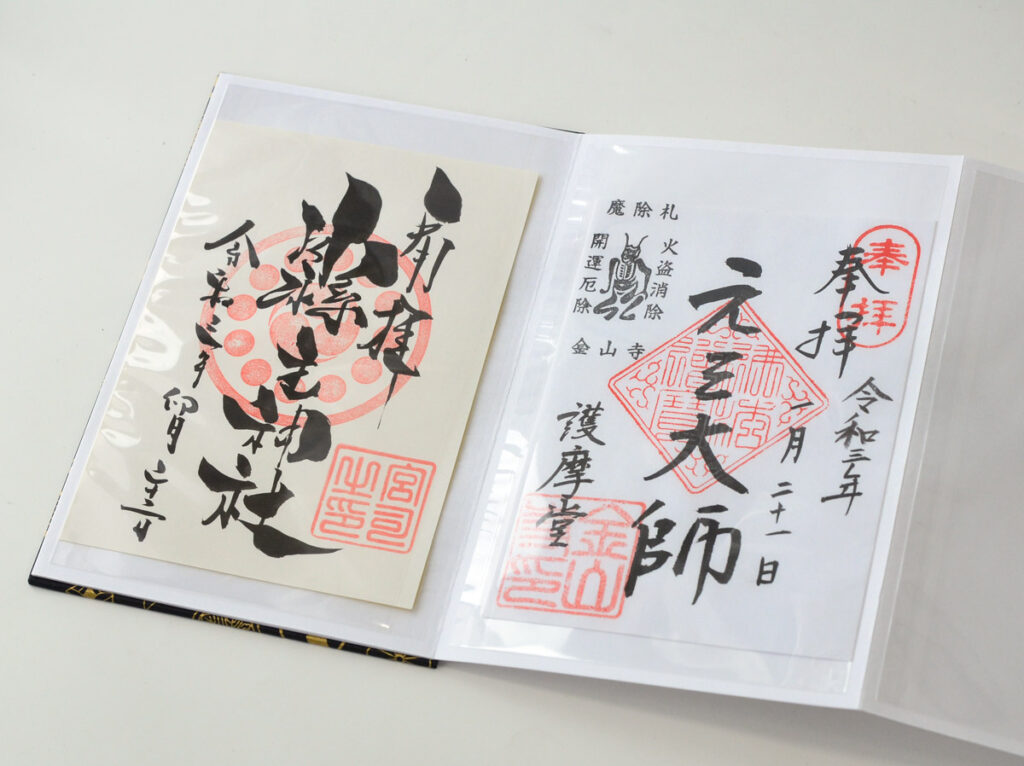 奉拝
奉拝
令和三年
一月二十一日
元三大師
魔除札
火盗消除
開運厄除
金山寺
護摩堂
金山
奉拝
神社
宮司之印
令和三年
卯月